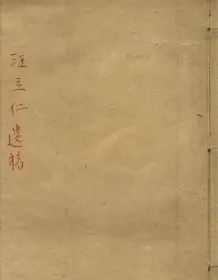 汪立仁遗稿